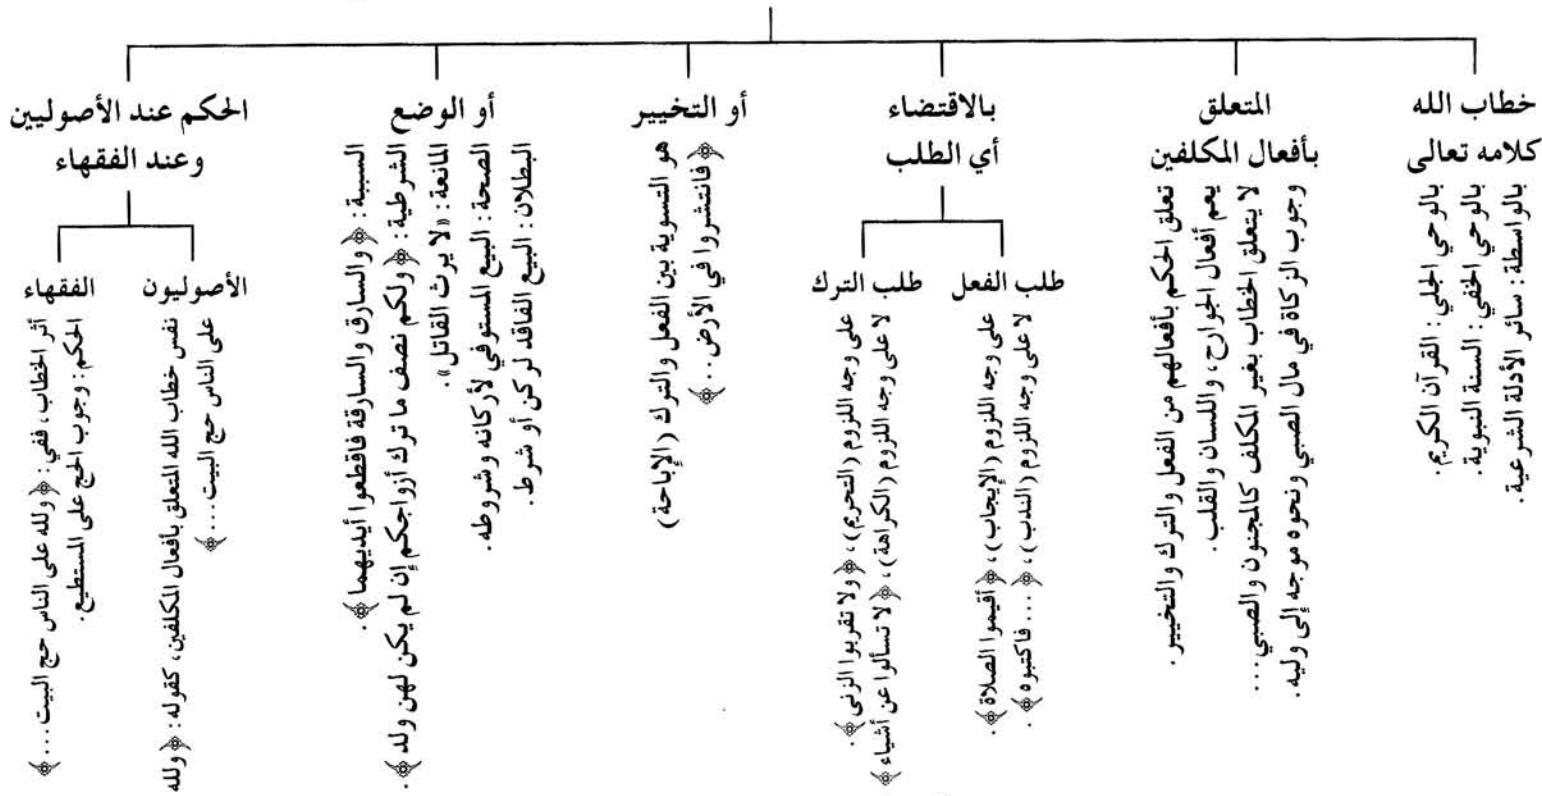 خطاب الله
كلامه تعالى
بالوحي الجلي : القرآن الكريم .
بالوحي الخفي : السنة النبوية .
بالواسطة : سائر الأدلة الشرعية .
المتعلق
بأفعال المكلفين
تعلق الحكم بأفعالهم من الفعل والترك والتخيير .
لا يتعلق الخطاب بغير المكلف كالمجنون والصبي ...
يعم أفعال الجوارح، واللسان والقلب .
وجوب الزكاة في مال الصبي ونحوه موجه إلى وليه .
بالاقتضاء
أي الطلب
طلب الفعل
على وجه اللزوم (الإيجاب)، ﴿ أقيموا الصلاة ﴾ .
لا على وجه اللزوم (الندب)، ﴿ ... فاكتبوه ﴾ .
طلب الترك
على وجه اللزوم (التحريم)، ﴿ ولا تقربوا الزنى ﴾ .
لا على وجه اللزوم (الكراهة)، ﴿ لا تسألوا عن أشياء ﴾
أو التخيير
هو التسوية بين الفعل والترك (الإباحة)
﴿ فانتشروا في الأرض .. ﴾
أو الوضع
السببية : ﴿ والسارق والسارقة فاقطعوا أيديهما ﴾ .
الشرطية : ﴿ ولكم نصف ما ترك أزواجكم إن لم يكن لهن ولد ﴾ .
المانعة : «لا يرث القاتل» .
الصحة : البيع المستوفي لأركانه وشروطه .
البطلان : البيع الفاقد لركن أو شرط .
الحكم عند الأصوليين
وعند الفقهاء
الأصوليون
نفس خطاب الله المتعلق بأفعال المكلفين، كقوله : ﴿ ولله
على الناس حج البيت ... ﴾
الفقهاء
أثر الخطاب، ففي : ﴿ ولله على الناس حج البيت ... ﴾
الحكم : وجوب الحج على المستطيع .